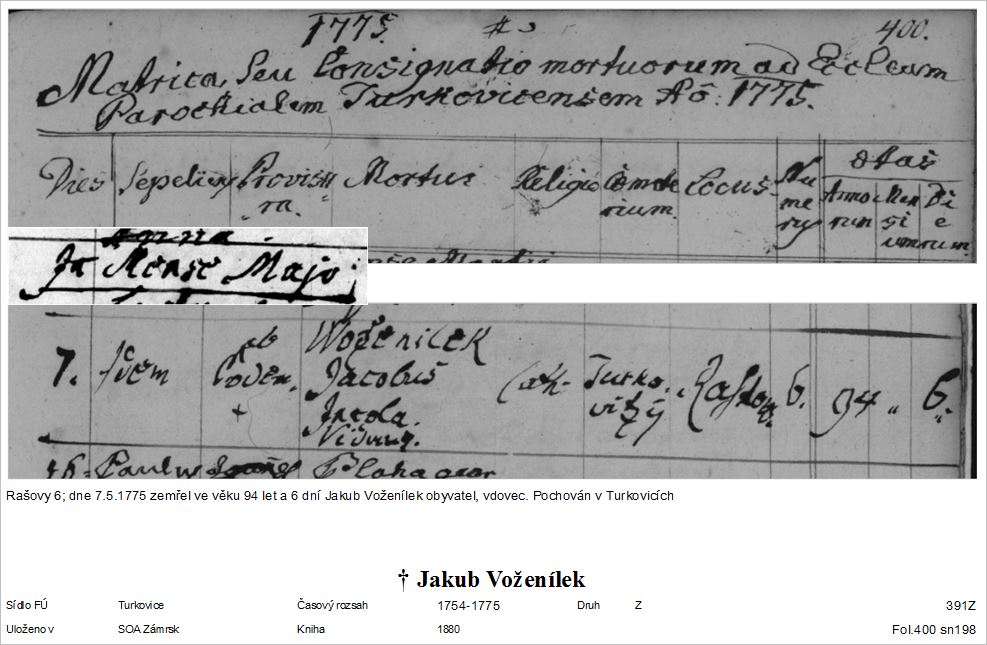 1775.
400.
Matrica, Seu Consignatio mortuorum ad Eccleam
Parochialem Turkovicensem Aô: 1775.
Dies Sepeliens Provisu Mortus Religio Cœmete Locus Nu Ætas
ra. rium. me Anno Men Di
ry rum si e
um rum
In Mense Majo
7. Idem Woženilek Cath. Turko. 6. 94 6.
Jacobus vitzÿ
Incola.
Viduus.
16. Paulus
Rašovy 6; dne 7.5.1775 zemřel ve věku 94 let a 6 dní Jakub Voženílek obyvatel, vdovec. Pochován v Turkovicích
† Jakub Voženílek
Sídlo FÚ Turkovice Časový rozsah 1754-1775 Druh Z 391Z
Uloženo v SOA Zámrsk Kniha 1880 Fol.400 sn198